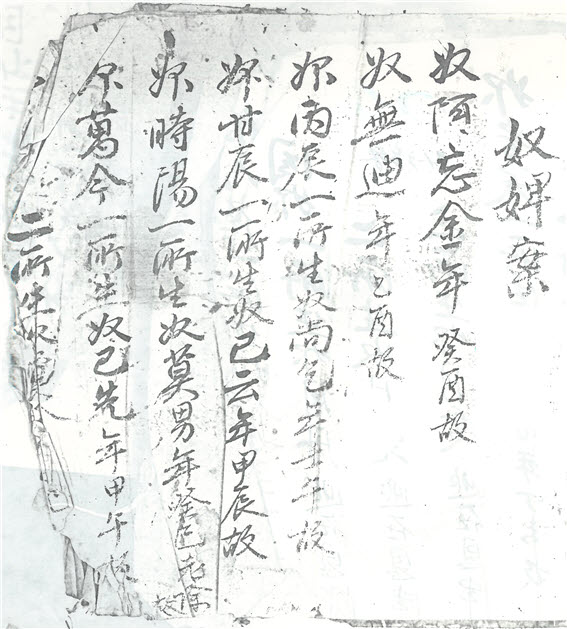 奴婢案
奴阿忘金年 癸酉故
奴無迪年己酉故
婢丙辰一所生奴尚乞年壬午故
婢甘辰一所生奴己云年甲辰故
婢時陽一所生奴莫男年癸巳
婢萬今一所生奴己先年甲午故
二所生奴